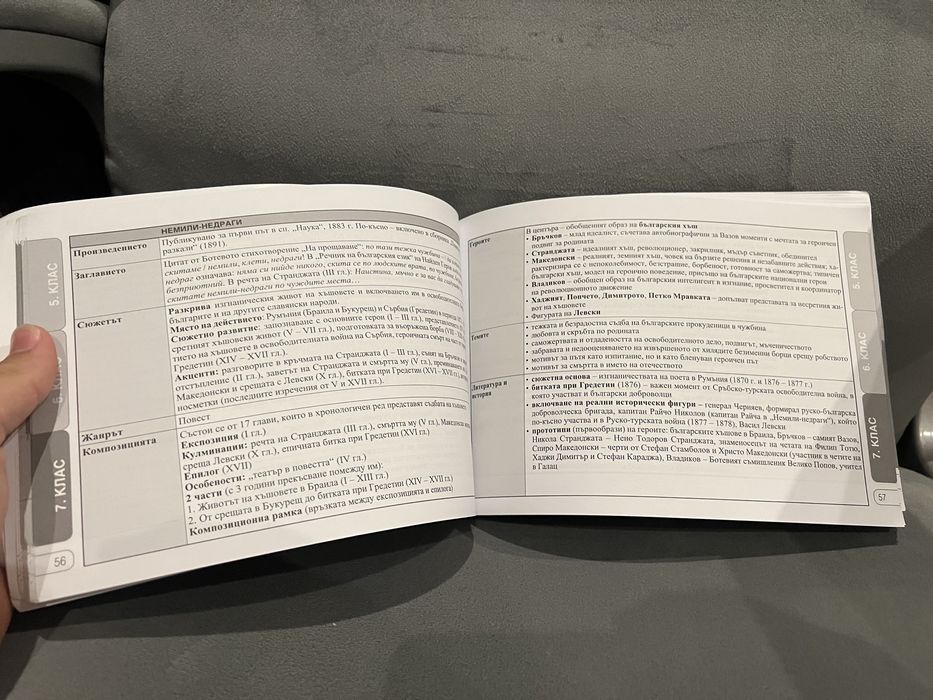 НЕМИЛИ-НЕДРАГИ
Произведението
Публикувано за първи път в сп. „Наука", 1883 г. По-късно – включено в сборника
разкази" (1891).
Заглавието
Цитат от Ботевото стихотворение „На прощаване": но таз тежка чужбина
скитаме / немили, клети, недраги! В „Речник на българския език" на Найден Геров
недраг означава: няма си нийде никого, скита се по людските врата, по чужбина,
безприютний. В речта на Странджата (III гл.): Наистина, мъчно е за вас да
скитате немили-недраги по чуждите места…
Сюжетът
Разкрива изгнаническия живот на хъшовете и включването им в освободителните
българите и на другите славянски народи.
Място на действието: Румъния (Браила и Букурещ) и Сърбия (Гредетин) в периода
Сюжетно развитие: запознаване с основните герои (I – III гл.), представянето
сретиният хъшовски живот (V – VII гл.), подготовката за въоръжена борба (VIII –
тието на хъшовете в освободителната война на Сърбия, героичната смърт на част от
Гредетин (XIV – XVII гл.).
Акценти: разговорите в кръчмата на Странджата (I – III гл.), смят на Бръчков и
отстъпление (II гл.), заветът на Странджата и смъртта му (V гл.), преминаването на
Македонски и срещата с Левски (X гл.), битката при Гредетин (XIV – XVI гл.),
носметки (последните изречения от V и XVII гл.).
Жанрът
Повест
Композицията
Състои се от 17 глави, които в хронологичен ред представят съдбата на хъшовете.
Експозиция (I гл.)
Кулминации: речта на Странджата (III гл.), смъртта му (V гл.), Македонски
среща Левски (X гл.), епичната битка при Гредетин (XVI гл.)
Епилог (XVII)
Особености: „театър в повестта" (IV гл.)
2 части (с 3 години прекъсване помежду им):
1. Животът на хъшовете в Браила (I – XIII гл.)
2. От срещата в Букурещ до битката при Гредетин (XIV – XVII гл.)
Композиционна рамка (връзката между експозицията и епилога)
5. КЛАС
7. КЛАС
56
Героите
В центъра – обобщеният образ на българския хъш
• Бръчков – млад идеалист, съчетава автобиографични за Вазов моменти с мечтата за героичен
подвиг за родината
• Странджата – идеалният хъш, революционер, закрилник, мъдър съветник, обединител
• Македонски – реалният, земният хъш, човек на бързите решения и незабавните действия; ха-
рактеризира се с непоколебимост, безстрашие, борбеност, готовност за саможертва; типичен
български хъш, модел на героично поведение, присъщо на българските национални герои
• Владиков – обобщен образ на българския интелигент в изгнание, просветител и координатор
на революционното движение
• Хаджият, Попчето, Димитрото, Петко Мравката – допълват представата за несретния жи-
вот на хъшовете
• Фигурата на Левски
Темите
• тежката и безрадостна съдба на българските прокуденици в чужбина
• любовта и скръбта по родината
• саможертвата и отдадеността на освободителното дело, подвигът, мъченичеството
• забравата и недооценяването на извършеното от хилядите безименни борци срещу робството
• мотивът за пътя като изпитание, но и като бленуван героичен път
• мотивът за смъртта в името на отечеството
Литература и
история
• сюжетна основа – изгнаничествата на поета в Румъния (1870 г. и 1876 – 1877 г.)
• битката при Гредетин (1876) – важен момент от Сръбско-турската освободителна война, в
която участват и български доброволци
• включване на реални исторически фигури – генерал Черняев, формирал руско-българска
доброволческа бригада, капитан Райчо Николов (капитан Райча в „Немили-недраги"), който
по-късно участва и в Руско-турската война (1877 – 1878), Васил Левски
• прототипи (първообрази) на героите: българските хъшове в Браила, Бръчков – самият Вазов,
Никола Странджата – Нено Тодоров Странджата, знаменосецът на четата на Филип Тотю,
Спиро Македонски – черти от Стефан Стамболов и Христо Македонски (участник в четите на
Хаджи Димитър и Стефан Караджа), Владиков – Ботевият съмишленик Велико Попов, учител
в Галац
5. КЛАС
6. КЛАС
7. КЛАС
57